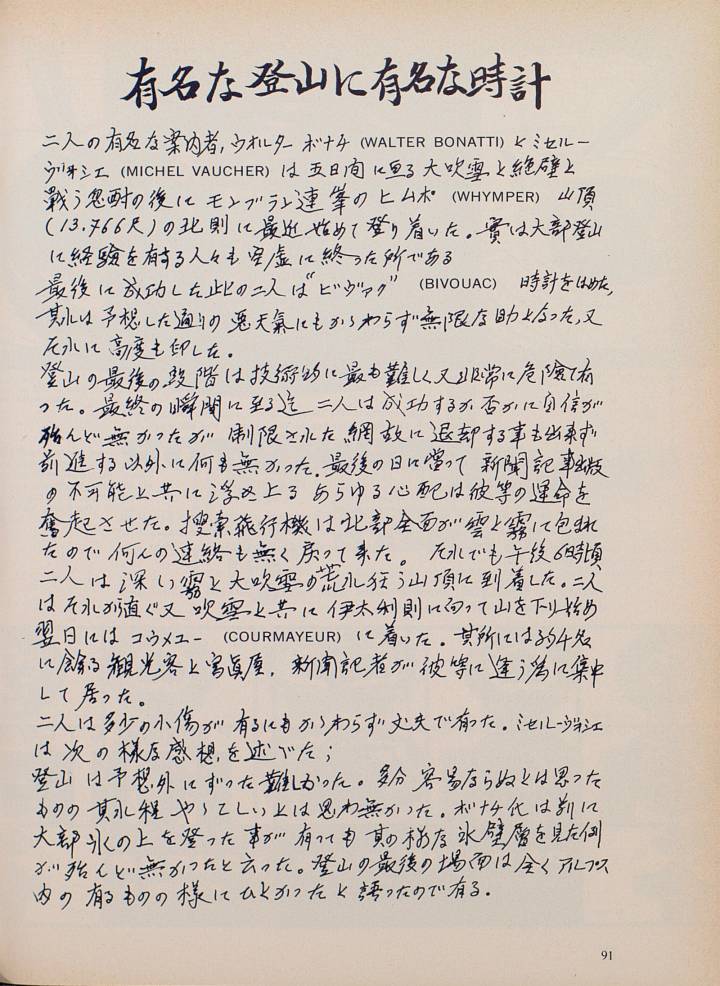 有名な登山に有名な時計
二人の有名な案内者,ウオルター ボナチ (WALTER BONATTI) とミセルー
ヴオシエ (MICHEL VAUCHER) は 五日間に亘る 大吹雪と絶壁と
戦う思酎の後に モンブラン連峯の ヒムポ (WHYMPER) 山頂
(13.766尺)の北則に最近始めて登り着いた。實は大部登山
に経験を有する人々も空虚に終った所である
最後に成功した此の二人は"ビヴァク" (BIVOUAC) 時計をはめた,
其れは予想した通りの悪天氣にもかゝわらず無限な助となった,又
それに高度も印した。
登山の最後の段階は技術的に最も難しく又非常に危険で有
った。最終の瞬間に至る迄 二人は成功するか否かに自信が
殆んど無かったが 制限された綱故に退却する事も出来ず
前進する以外に何も無かった.最後の日に當って 新聞記事出版
の不可能と共に浮び上る あらゆる心配は彼等の運命を
奮起させた。捜索飛行機は北部全面が雲と霧に包まれ
たので何んの連絡も無く戻って来た。 それでも午後6時頃
二人は深い霧と大吹雪の荒れ狂う山頂に到着した.二人
はそれから直ぐ又吹雪と共に伊太利則に向って山を下り始め
翌日には コウメユー (COURMAYEUR) に着いた。其所には約千名
に余る観光客と写真屋,新聞記者が彼等に逢う為に集中
して居った。
二人は多少の小傷が有るにもかゝわらず丈夫で有った.ミセルーヴォシエ
は次の様な感想を述べた;
登山は予想外にずった難しかった。多分容易ならぬとは思った
ものの其れ程やゝこしいとは思わ無かった.ボナチ代は前に
大部氷の上を登った事が有っても其の様な氷壁層を見た例
が殆んど無かったと云った。登山の最後の場面は全くアルプス
内の有るものの様にひどかったと語ったので有る.
91